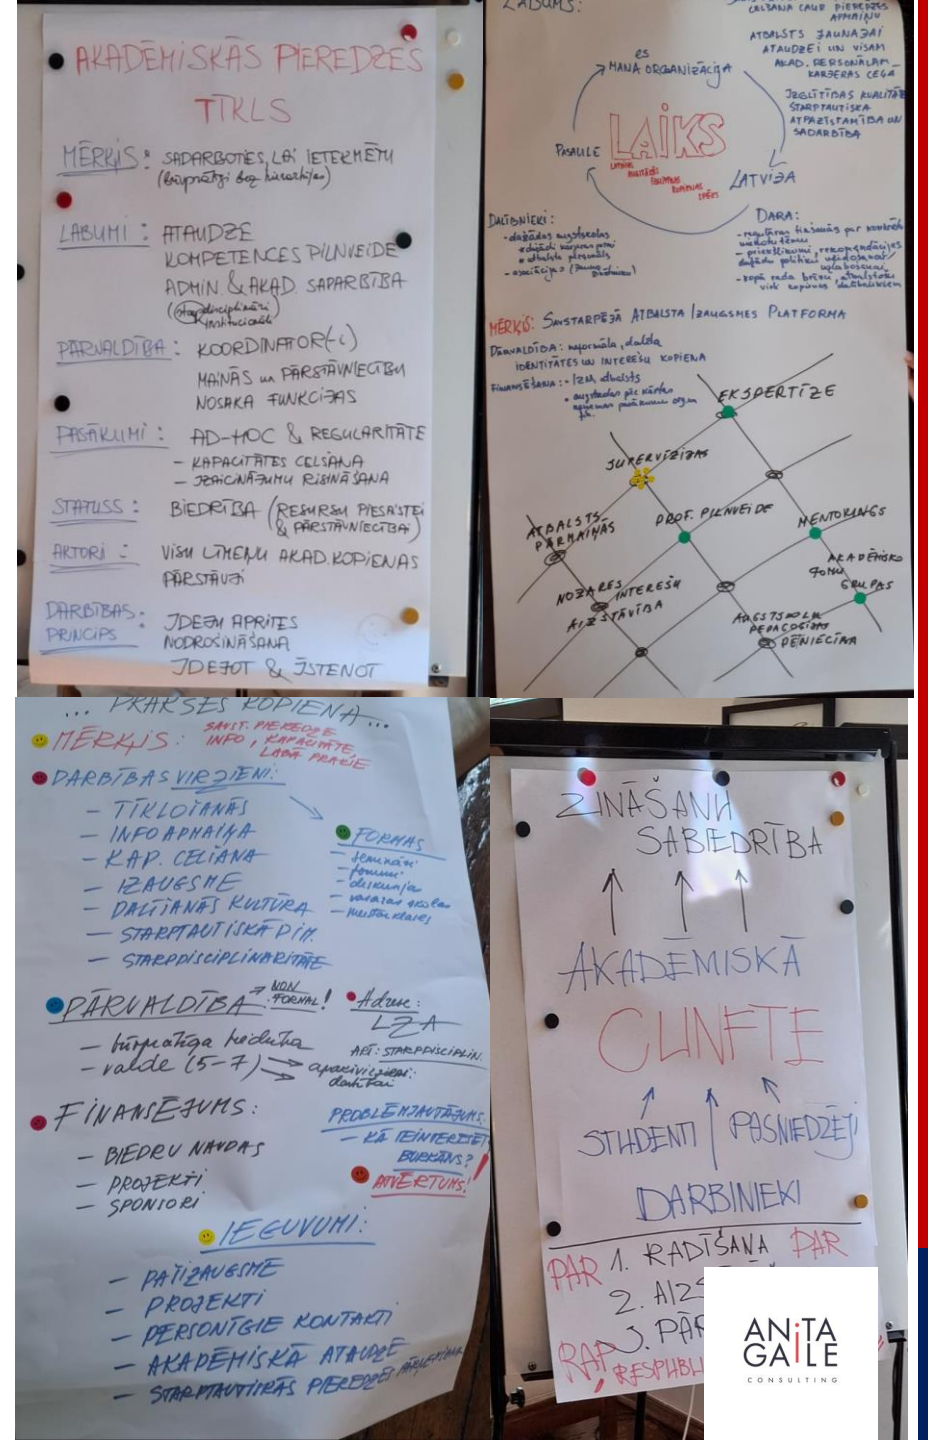 AKADĒMISKĀS PIEREDZES
TĪKLS
MĒRĶIS: SADARBOTIES, LAI IETEKMĒTU
LABUMI: ATAUDZE
KOMPETENCES PILNVEIDE
ADMIN. & AKAD. SADARBĪBA
PĀRVALDĪBA: KOORDINATOR(-I)
MAINĀS un PĀRSTĀVNIECĪBU
NOSAKA FUNKCIJAS
PASĀKUMI: AD-HOC & REGULARITĀTE
- KAPACITĀTES CELŠANA
- IZAICINĀJUMU RISINĀŠANA
STATUSS: BIEDRĪBA (RESURSU PIESAISTEI
& PĀRSTĀVNIECĪBAI)
AKTORI: VISU LĪMEŅU AKAD. KOPIENAS
PĀRSTĀVJI
DARBĪBAS PRINCIPS: IDEJU APRITES
NODROŠINĀŠANA
IDEJOT & ĪSTENOT
LABUMS:
CELŠANA CAUR PIEREDZES
APMAIŅU
ATBALSTS JAUNAJAI
ATAUDZEI UN VISAM
AKAD. PERSONĀLAM
KARJERAS CEĻĀ
IZGLĪTĪBAS KVALITĀTE
STARPTAUTISKĀ
ATPAZĪSTAMĪBA UN
SADARBĪBA
es
MANA ORGANIZĀCIJA
LAIKS
PASAULE
LATVIJA
DALĪBNIEKI:
- dažādas augstskolas
DARA:
MĒRĶIS: SAVSTARPĒJĀ ATBALSTA IZAUGSMES PLATFORMA
PĀRVALDĪBA: neformāla, dažāda
IDENTITĀTES UN INTEREŠU KOPIENA
FINANSĒŠANA: • IZM atbalsts
EKSPERTĪZE
SUPERVĪZIJAS
ATBALSTS PĀRMAIŅĀS
PROF. PILNVEIDE
MENTORINGS
AKADĒMISKO
JOMU
GRUPAS
NOZARES INTEREŠU
AIZSTĀVĪBA
AUGSTSKOLU
PEDAGOĢIJAS
PĒTNIECĪBA
... PRAKSES KOPIENA...
MĒRĶIS: SAVST. PIEREDZE
INFO, KAPACITĀTE,
LABĀ PRAKSE
DARBĪBAS VIRZIENI:
- TĪKLOŠANĀS
- INFO APMAIŅA
- KAP. CELŠANA
- IZAUGSME
- DALĪŠANĀS KULTŪRA
- STARPTAUTISKĀ DIM.
- STARPDISCIPLINARITĀTE
FORMAS
- semināri
- forumi
- diskusija
- vasaras skolas
- meistarklases
PĀRVALDĪBA → NON FORMAL!
- brīvprātīga biedrība
- valde (5-7)
Adrese:
LZA
ARĪ: STARPDISCIPLIN.
FINANSĒJUMS:
- BIEDRU NAUDAS
- PROJEKTI
- SPONSORI
PROBLĒMJAUTĀJUMS:
- KĀ IEINTERESĒT
BURKĀNS?
ATVĒRTUMS!
IEGUVUMI:
- PAŠIZAUGSME
- PROJEKTI
- PERSONĪGIE KONTAKTI
- AKADĒMISKĀ ATAUDZE
- STARPTAUTISKĀS PIEREDZES
ZINĀŠANU
SABIEDRĪBA
AKADĒMISKĀ
CUNFTE
STUDENTI PASNIEDZĒJI
DARBINIEKI
PAR 1. RADĪŠANA PAR
2. AIZS
3. PĀR
RAP
RESPUBLI
ANiTA
GAiLE
CONSULTING